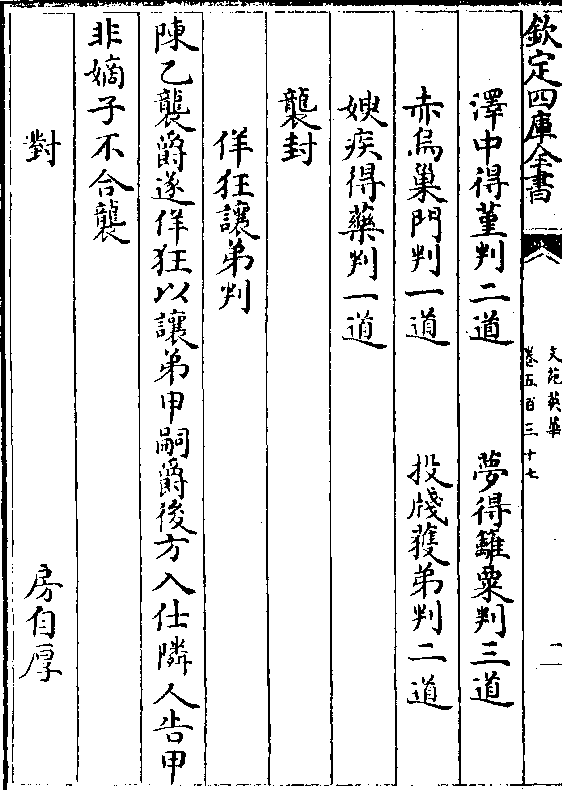 欽定四庫全書
文苑英華
卷五百三十七
二
澤中得堇判二道
夢得籬粟判三道
赤烏巢門判一道
投牋獲弟判二道
嫂疾得藥判一道
襲封
佯狂讓弟判
陳乙襲爵遂佯狂以讓弟甲嗣爵後方入仕隣人告甲
非嫡子不合襲
對
房自厚